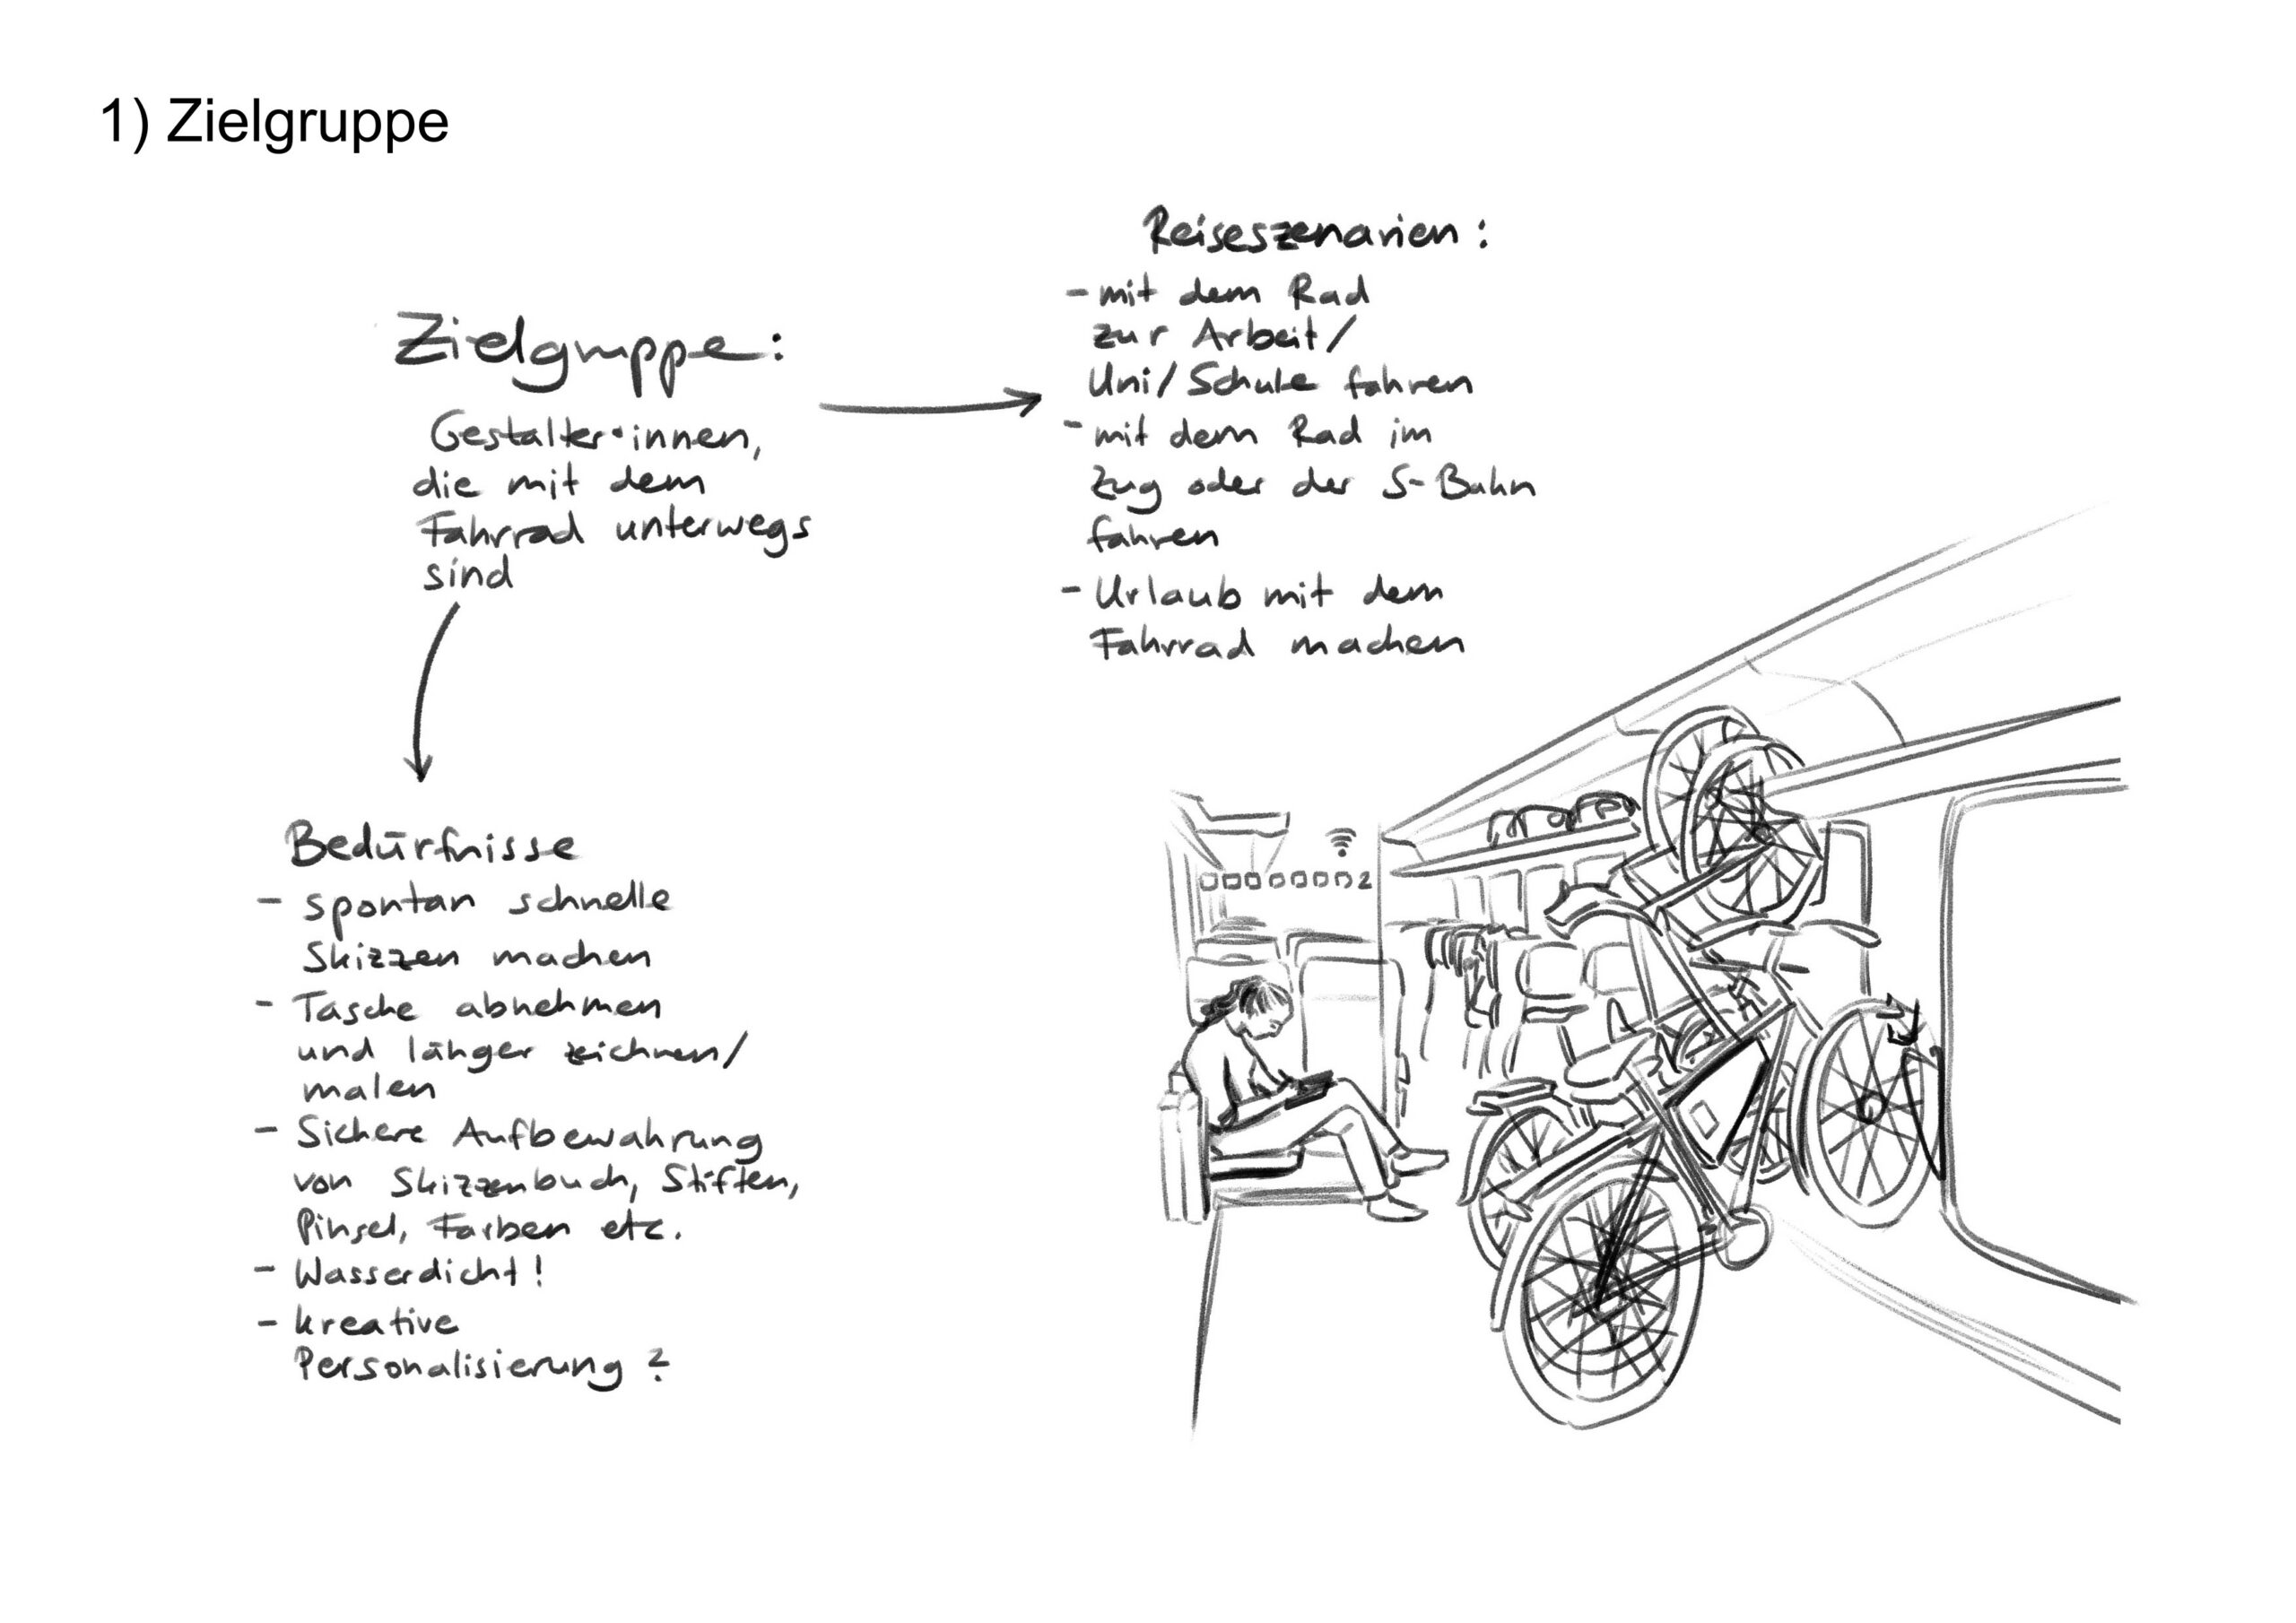 1) Zielgruppe
Zielgruppe:
Gestalter·innen,
die mit dem
Fahrrad unterwegs
sind
Reiseszenarien:
- mit dem Rad
zur Arbeit/
Uni/Schule fahren
- mit dem Rad im
Zug oder der S-Bahn
fahren
- Urlaub mit dem
Fahrrad machen
Bedürfnisse
- spontan schnelle
Skizzen machen
- Tasche abnehmen
und länger zeichnen/
malen
- Sichere Aufbewahrung
von Skizzenbuch, Stiften,
Pinsel, Farben etc.
- Wasserdicht!
- kreative
Personalisierung?
2